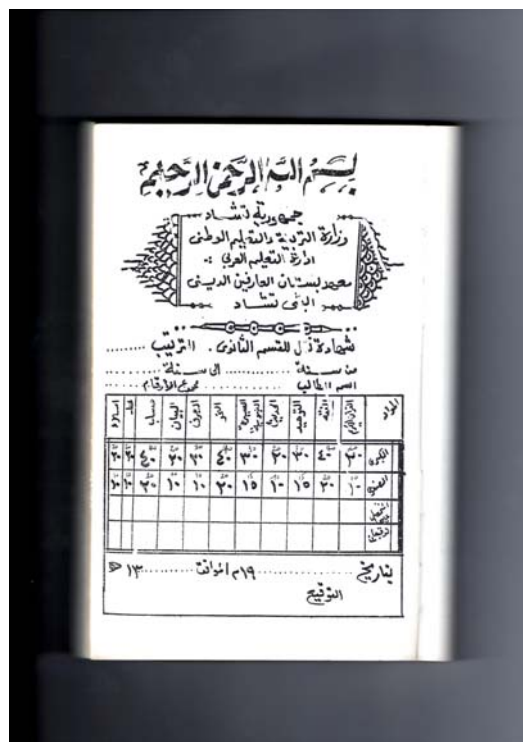 بسم الله الرحمن الرحيم
جمهورية تشاد
وزارة التربية والتعليم الوطنى
ادارة التعليم العربى :-
معهد بستان العارفين الدينى
اتى تشاد
شهادة نقل للقسم الثانوى . الترتيب ........
من سنة .............. الى سنة ........
اسم الطالب ............ مجموع الأرقام ........
المواد القرآن الكريم الفقه التوحيد الحديث السيرة النبوية النحو الصرف البيان حساب
الكبرى ٢٠ ٤٠ ٣٠ ٢٠ ٣٠ ٤٠ ٢٠ ٢٠ ٤٠
الصغرى ١٠ ٢٠ ١٥ ١٠ ١٥ ٢٠ ١٠ ١٠ ٢٠
بتاريخ ............ ١٩م الموافق .......... ١٣ هـ
التوقيع